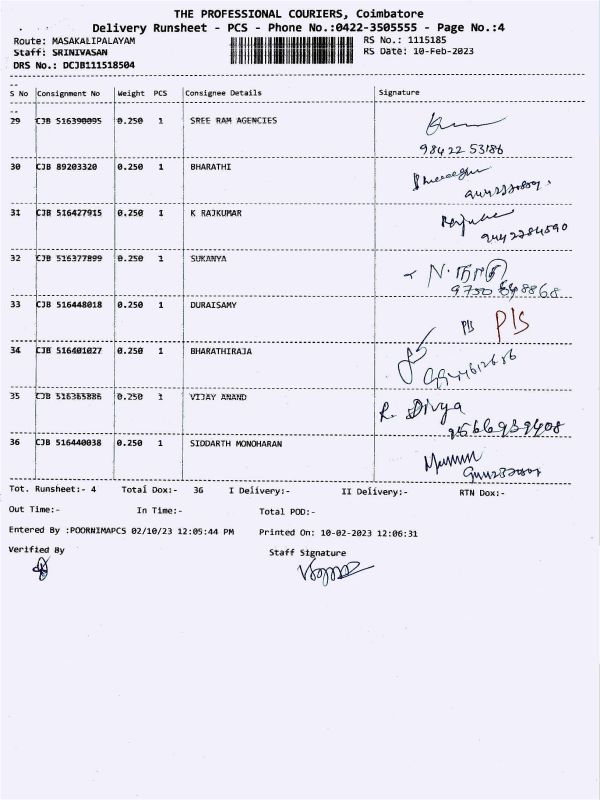 THE PROFESSIONAL COURIERS, Coimbatore
Delivery Runsheet - PCS - Phone No.:0422-3505555 - Page No.:4
Route: MASAKALIPALAYAM RS No.: 1115185
Staff: SRINIVASAN RS Date: 10-Feb-2023
DRS No.: DCJB111518504
S No Consignment No Weight PCS Consignee Details Signature
29 CJB 516390095 0.250 1 SREE RAM AGENCIES
98422 53186
30 CJB 89203320 0.250 1 BHARATHI
31 CJB 516427915 0.250 1 K RAJKUMAR
32 CJB 516377899 0.250 1 SUKANYA
33 CJB 516448018 0.250 1 DURAISAMY
P/S P/S
34 CJB 516401027 0.250 1 BHARATHIRAJA
35 CJB 516365886 0.250 1 VIJAY ANAND R. Divya
9566939408
36 CJB 516440038 0.250 1 SIDDARTH MONOHARAN
Tot. Runsheet:- 4 Total Dox:- 36 I Delivery:- II Delivery:- RTN Dox:-
Out Time:- In Time:- Total POD:-
Entered By :POORNIMAPCS 02/10/23 12:05:44 PM Printed On: 10-02-2023 12:06:31
Verified By Staff Signature